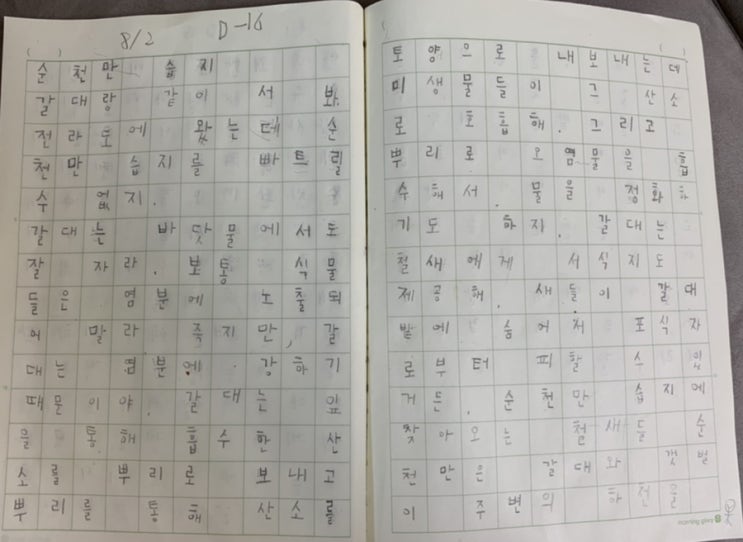 8/2 D-16
순천만 습지
갈대랑 같이 서 봐
전라도에 왔는데 순
천만 습지를 빠트릴
수 없지.
갈대는 바닷물에서도
잘 자라. 보통 식물
들은 염분에 노출되
어 말라 죽지만, 갈
대는 염분에 강하기
때문이야. 갈대는 잎
을 통해 흡수한 산
소를 뿌리로 보내고
뿌리를 통해 산소를
토양으로 내보내는데
미생물들이 그 산소
로 호흡해. 그리고
뿌리로 오염물을 흡
수해서 물을 정화하
기도 하지. 갈대는
철새에게 서식지도
제공해. 새들이 갈대
밭에 숨어서 포식자
로부터 피할 수 있
거든. 순천만 습지에
찾아오는 철새들 순
천만은 갈대와 갯벌
이 주변의 하천을
morning glory